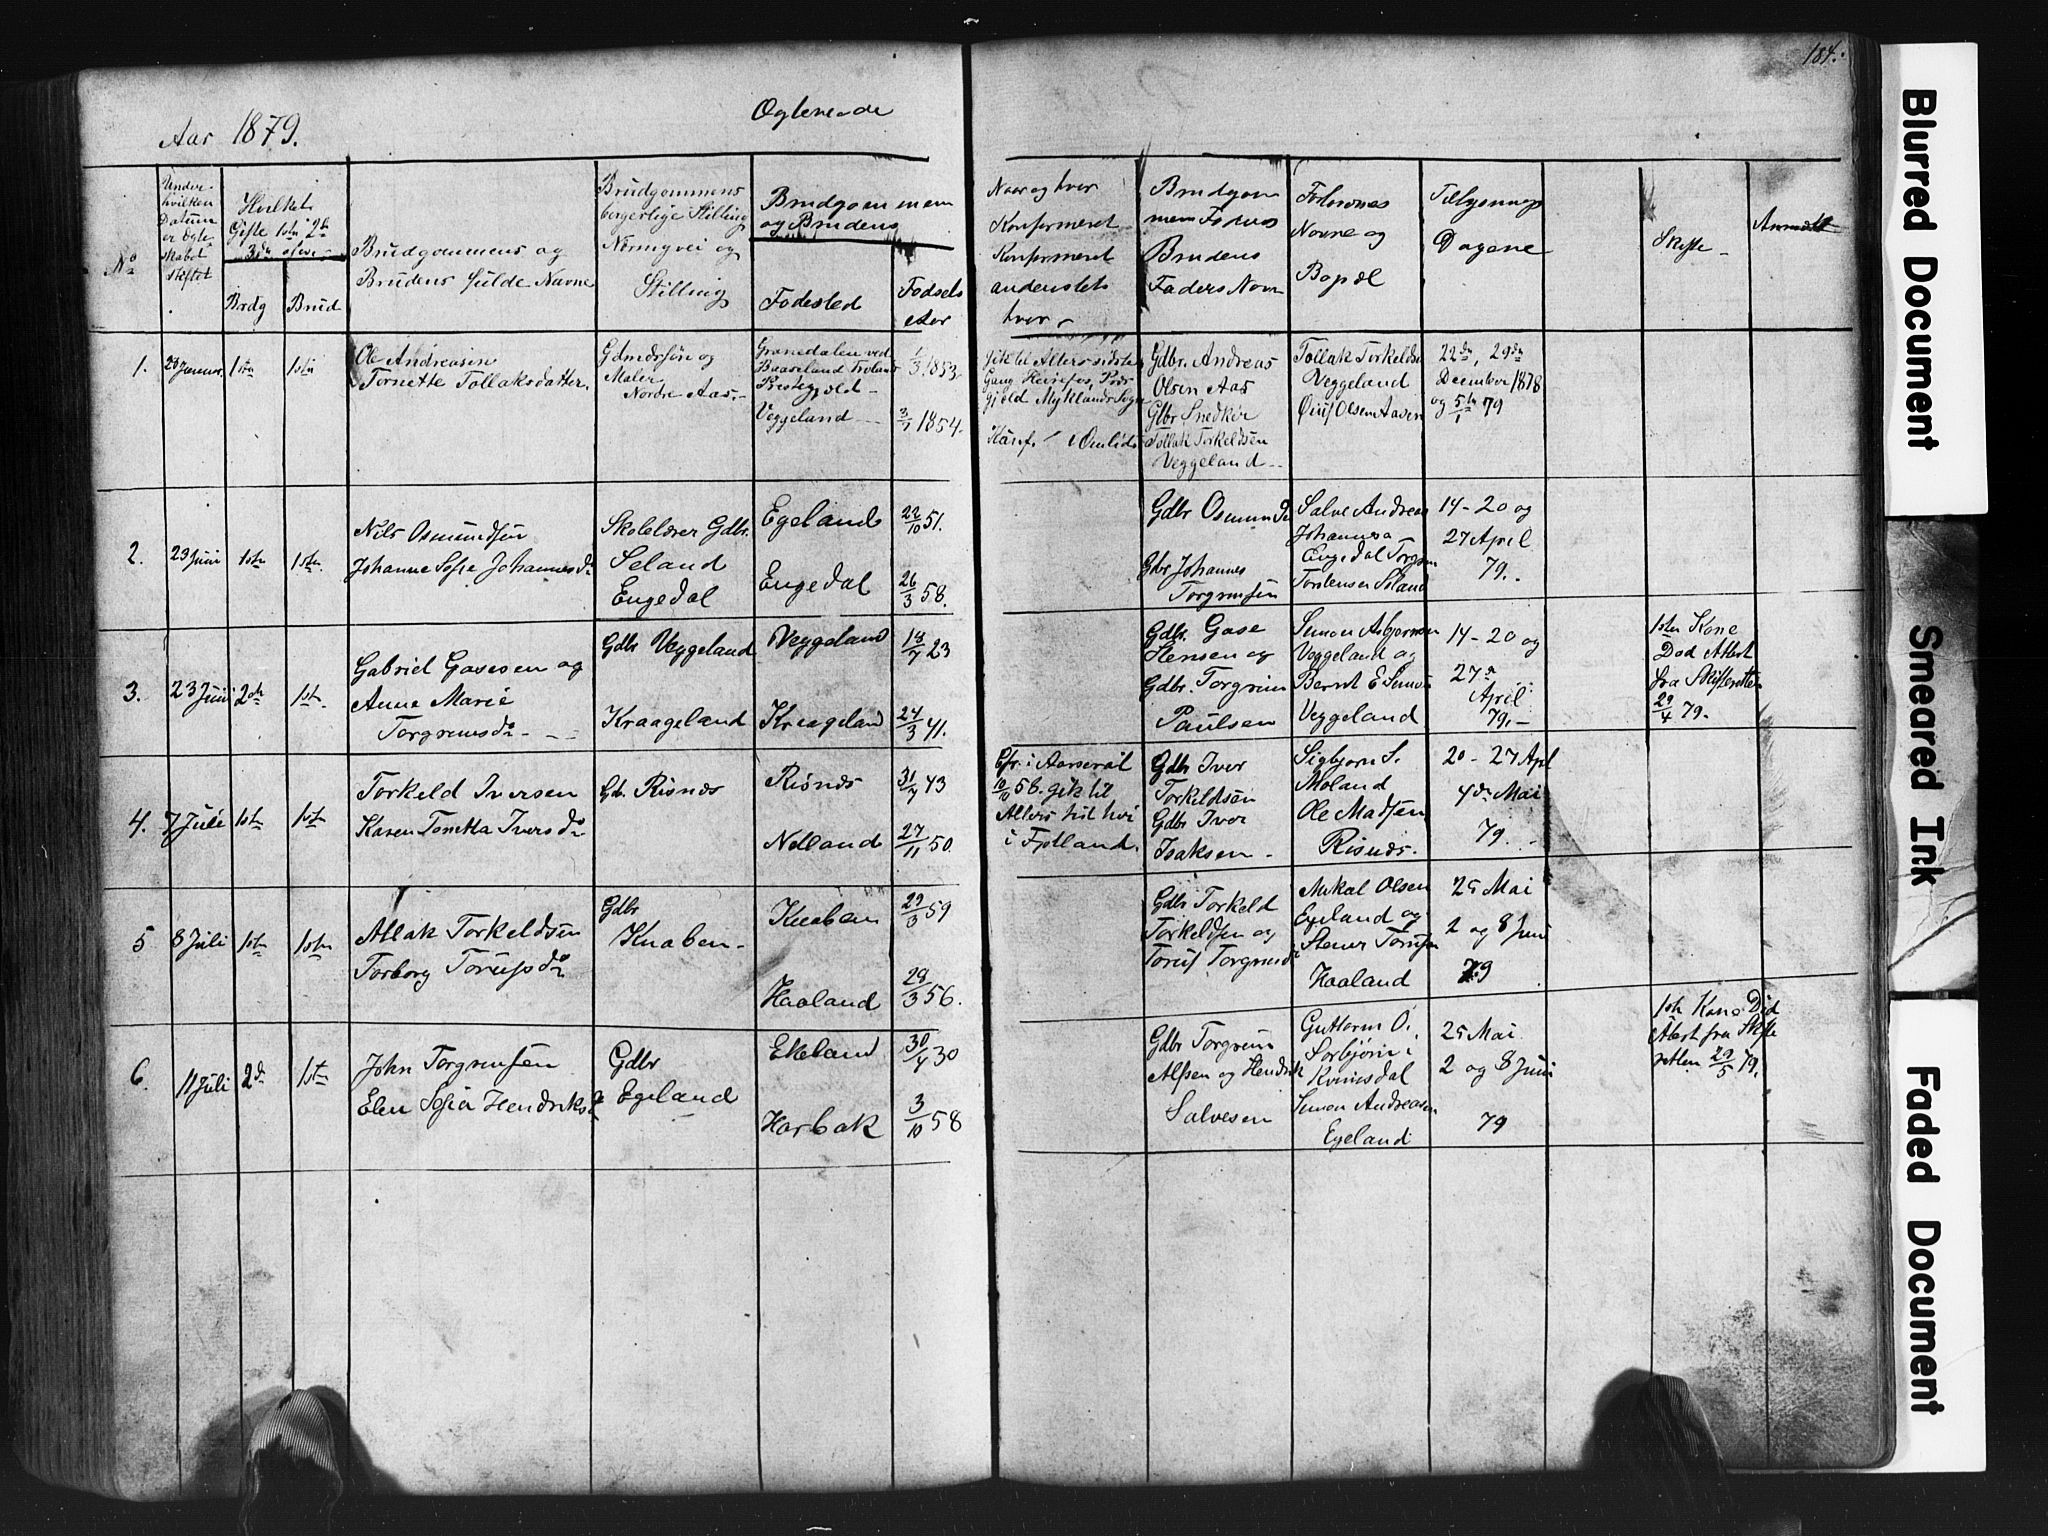 184.
Aar 1879.
Egteviede
No
Under
hvilken
Datum
er Egte
skabet
stiftet
Hvilket
Gifte 1ste 2de
3die osv.
Brdg
Brud
Brudgommens og
Brudens fulde Navne
Brudgommens
borgerlige Stilling
Næringvei og
Stilling
Brudgommens
og Brudens
Fødested
Fødsels
Aar
Naar og hvor
Konfirmeret
Konfirmeret
andenstets
hvor
Brudgom
mens Faders
Brudens
Faders Navn
Forlovernes
Navne og
Bopæl
Tillysnings
Dagene
Skifte
Anmelt
1.
Januar
1ste
1ste
Ole Andreasen
Tornette Tollaksdatter
Gdmdrsøn og
Maler
Nordre Aas
Veggeland
1/3 1853
3/1 1854.
Gdbr. Andreas
Olsen Aas
Gbr Snedker
Tollak Torkeldsen
Veggeland
Tollak Torkeldsen
Veggeland
Olsen Aasen
22de, 29de
December 1878
og 5te/1 79
2.
23 Juni
1ste
1ste
Nils Osmundsen
Johanne Sofie Johannesdr
Skolelærer Gdbr.
Seland
Engedal
Egeland
Engedal
22/10 51.
26/3 58.
Gdbr Osmund
Gdbr Johannes
Torgrimsen
Salve Andreas
Johannes
Engedal Torgrim
Torstensen Seland
14 - 20 og
27 April
79.
3.
23 Juni
2de
1ste
Gabriel Gasesen og
Anne Marie
Torgrimsdr
Gdbr Veggeland
Kraageland
Veggeland
Kraageland
18/7 23
24/3 41.
Gdbr. Gase
Stensen og
Gdbr. Torgrim
Paulsen
Simon Asbjørnsen
Veggeland og
Bernt E Simon
Veggeland
14 - 20 og
27de
April
79.
1ste Kone
Død Attest
fra Skifteretten
29/4 79.
4.
7 Juli
1ste
1ste
Torkeld Iversen
Karen Tomtta Iversdr
Gb. Risnes
Risnes
Netland
31/7 43
27/11 50.
i Aaseral
10/10 56. gik til
Alters
i Fjotland.
Gdbr Iver
Torkeldsen
Gdbr Iver
Isaksen
Sigbjørn S.
Moland
Ole Madsen
Risnes.
20 - 27 Apl
4de Mai
79.
5
8 Juli
1ste
1ste
Atlak Torkeldsen
Torborg Torjusdr
Gdbr
Knaben
Knaben
Haaland
29/3 59
28/3 56.
Gdbr Torkeld
Torkeldsen og
Torjus Torgrimsen
Mikal Olsen
Egeland og
Stener Torjusen
Haaland
25 Mai
2 og 8 Juni
79
6.
11 Juli
2de
1ste
John Torgrimsen
Elen Sofia Hendriksdr
Gdbr
Egeland
Ekeland
Harbak
30/4 30
3/10 58
Gdbr Torgrim
Alfsen og Hendrik
Salvesen
Guttorm O.
Sorbjørn i
Kvinesdal
Simon Andreasen
Egeland
25 Mai
2 og 8 Juni
79
1ste Kone Død
Attest fra Skifte
retten 29/5 79.
Blurred Document
Smeared Ink
Faded Document